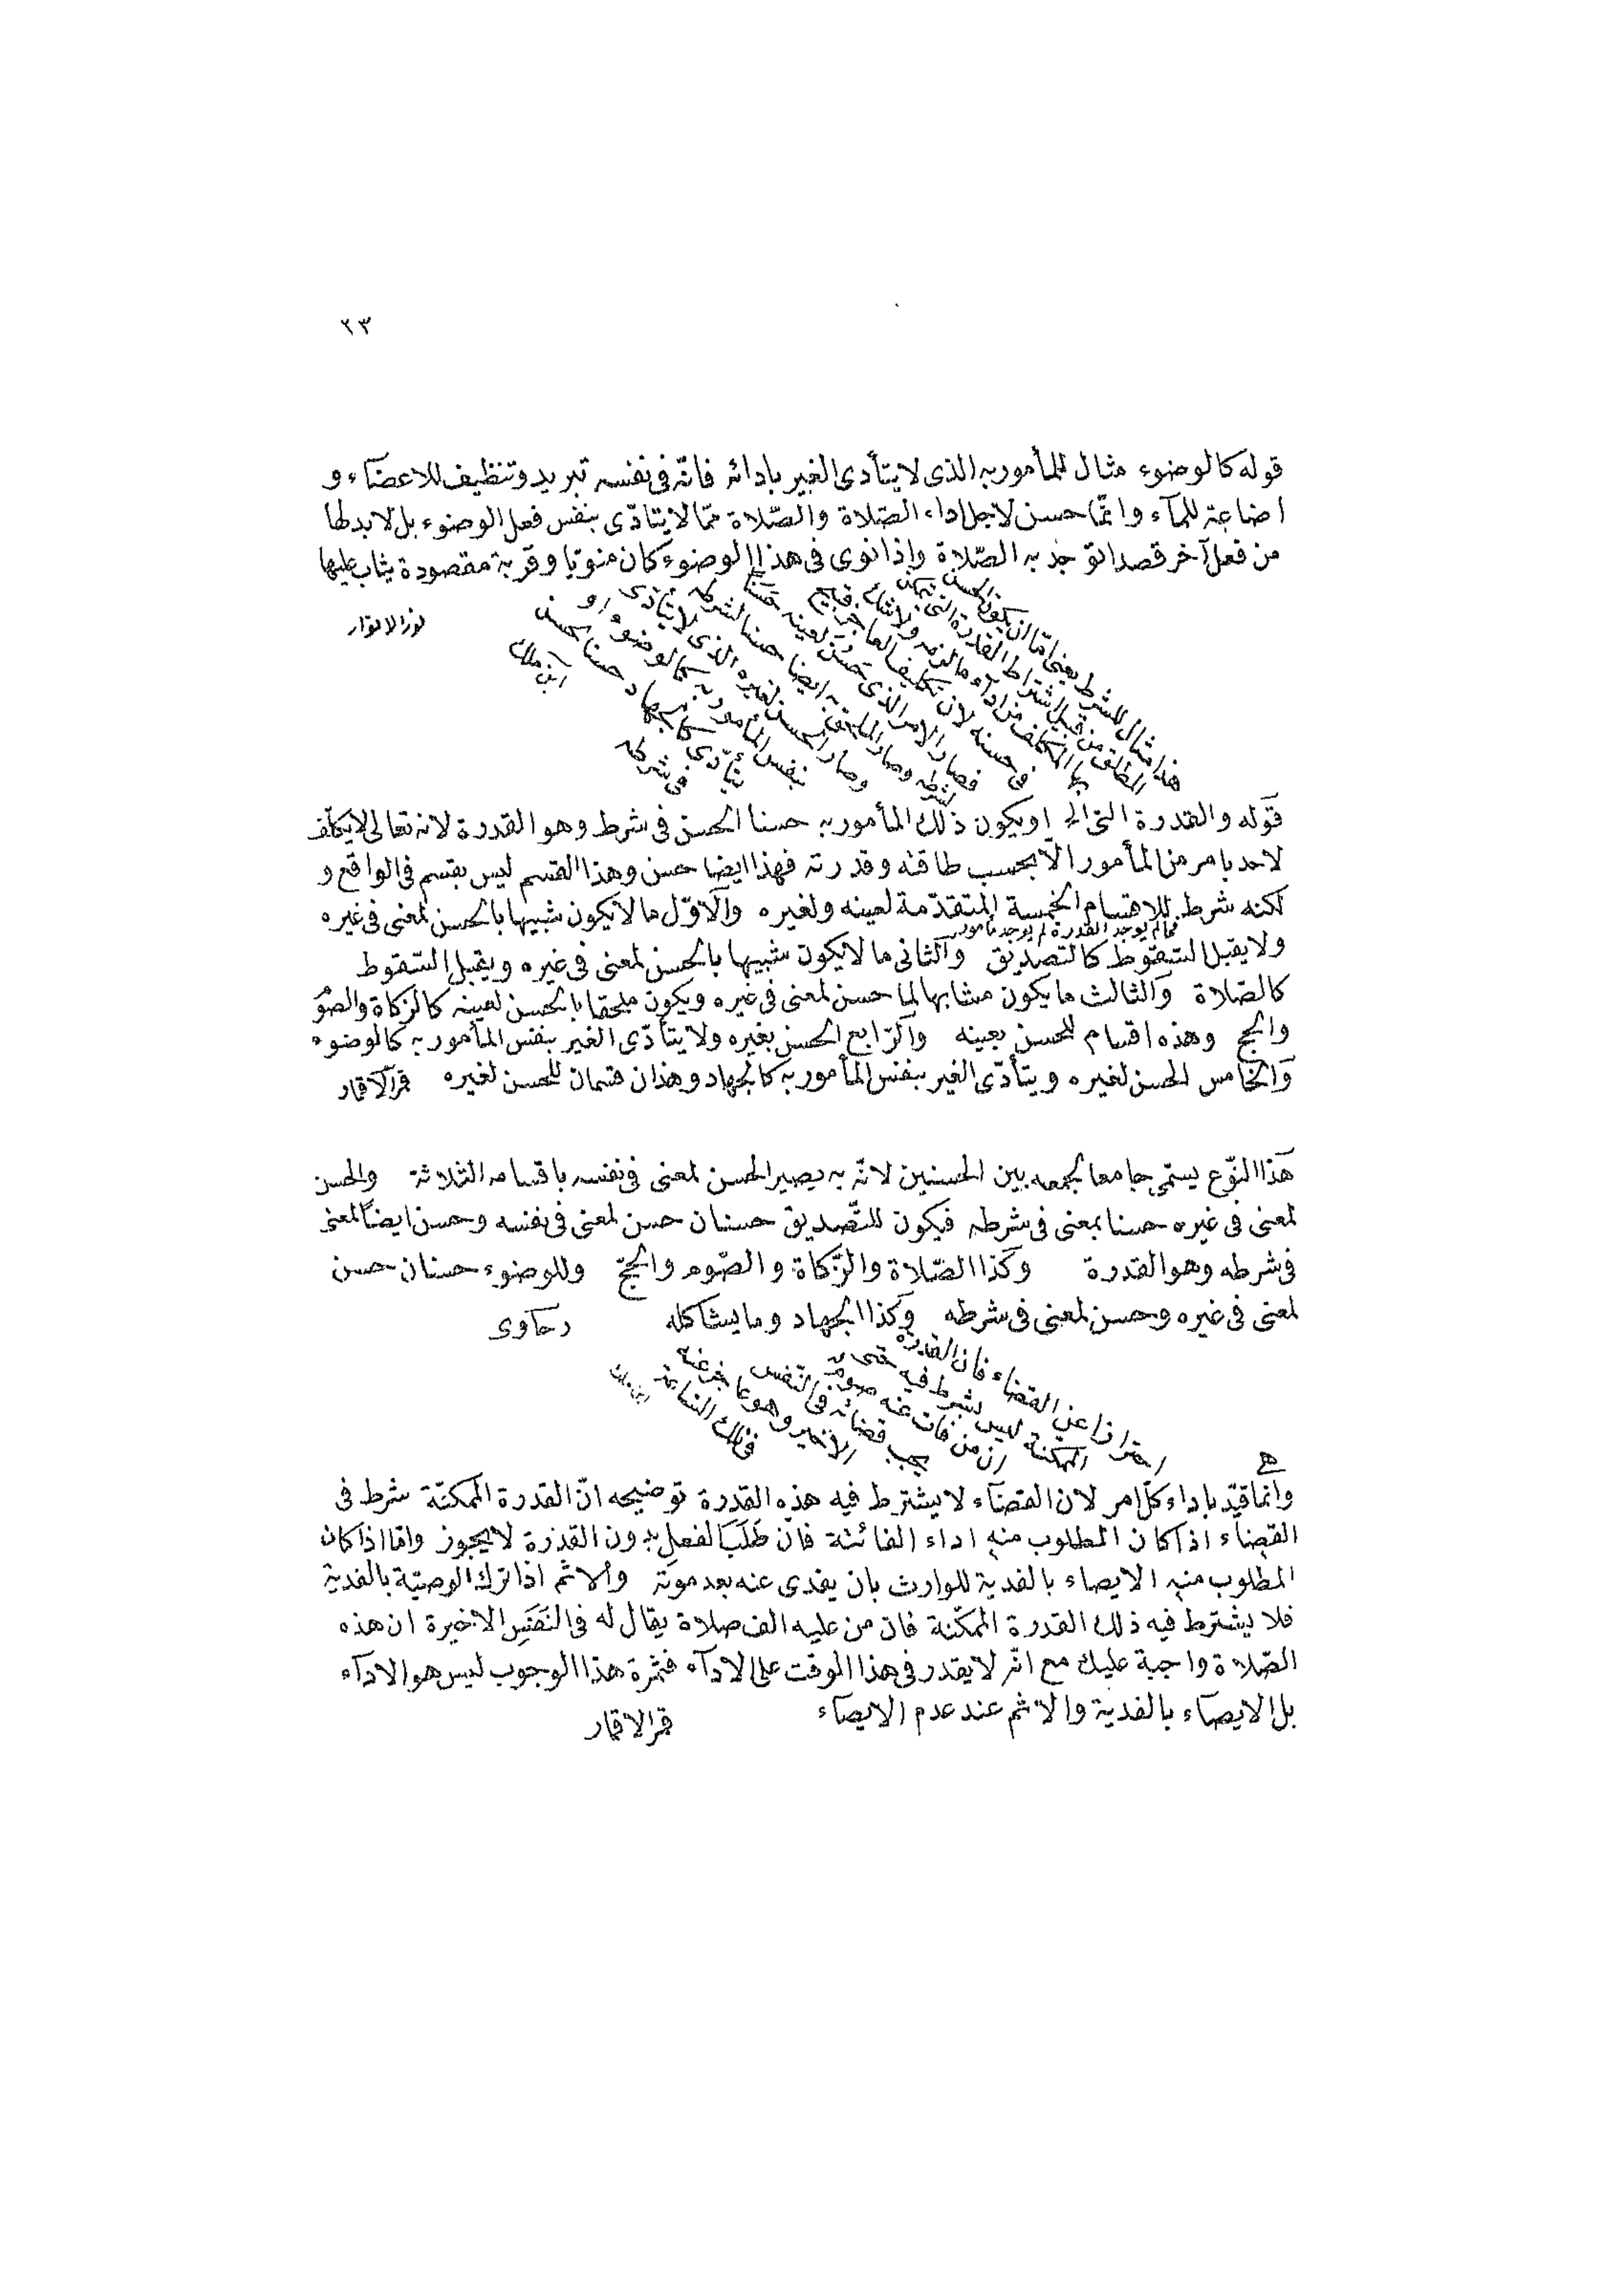 ٢٣
قوله كالوضوء مثال للمأمور به الذى لا يتأدى الغير بادائه فانّه فى نفسه تبريد وتنظيف للاعضآء و
اضاعة للمآء وانّما حسن لاجل اداء الصّلاة والصّلاة ممّا لا يتأدّى بنفس فعل الوضوء بل لابد لها
من فعل آخر قصدا توجد به الصّلاة واذا نوى فى هذا الوضوء كان منويّا وقربة مقصودة يثاب عليها
نور الانوار
هذا مثال للشرط يعنى امّا ان يكون الحسن
الطلق من قبيل اشتراط القدرة التى يتمكن
بها المكلف من اداء ما لزمه ولا شك
فى حسنه لان تكليف العاجز قبيح
فصار الامر الذى حسن لعينه حسنا
لشرطه وصار الملحق به ايضا حسنا لشرطه
وصار الحسن لغيره الذى لا يتأدى
بنفس المأمور به كالوضوء او
يتأدى كالجهاد حسنا لحسن
فى شرطه
ابن ملك
قوله والقدرة التى الخ او يكون ذلك المأمور به حسنا لحسن فى شرط وهو القدرة لانه تعالى لا يكلّف
لاحد بامر من المأمور الّا بحسب طاقته وقدرته فهذا ايضا حسن وهذا القسم ليس بقسم فى الواقع و
لكنه شرط للاقسام الخمسة المتقدّمة لعينه ولغيره والاوّل ما لا يكون شبيها بالحسن لمعنى فى غيره
فما لم يوجد القدرة لم يوجد مأمور
ولا يقبل السّقوط كالتصديق والثانى ما لا يكون شبيها بالحسن لمعنى فى غيره ويقبل السّقوط
كالصّلاة والثالث ما يكون مشابها لما حسن لمعنى فى غيره ويكون ملحقا بالحسن لعينه كالزكاة والصّو
والحج وهذه اقسام للحسن بعينه والرّابع الحسن بغيره ولا يتأدّى الغير بنفس المأمور به كالوضوء
والخامس الحسن لغيره ويتأدّى الغير بنفس المأمور به كالجهاد وهذان قسمان للحسن لغيره قمر الاقمار
هذا النّوع يسمّى جامعا لجمعه بين الحسنين لانّه به يصير الحسن لمعنى فى نفسه باقسامه الثلاثة والحسن
لمعنى فى غيره حسنا بمعنى فى شرطه فيكون للتّصديق حسنان حسن لمعنى فى نفسه وحسن ايضًا لمعنى
فى شرطه وهو القدرة وكذا الصّلاة والزّكاة والصّوم والحجّ وللوضوء حسنان حسن
لمعنى فى غيره وحسن لمعنى فى شرطه وكذا الجهاد وما يشاكله رحآوى
احترازا عن القضاء فان القدرة
الممكنة ليس بشرط فيه حتى
ان من فات عنه صوم
يجب قضائه فى النّفس
الاخير وهو عاجز عنه
فى تلك الساعة
وانما قيّد باداء كلّ امر لان القضآء لا يشترط فيه هذه القدرة توضيحه انّ القدرة الممكنّة شرط فى
القضاء اذا كان المطلوب منه اداء الفائتة فانّ طَلَبَ الفعل بدون القدرة لا يجوز وامّا اذا كان
المطلوب منه الايصاء بالفدية للوارث بان يفدى عنه بعد موته والاثم اذا ترك الوصيّة بالفدية
فلا يشترط فيه ذلك القدرة الممكّنة فان من عليه الف صلاة يقال له فى النَفَسِ الاخيرة ان هذه
الصّلاة واجبة عليك مع انّه لا يقدر فى هذا الوقت على الادآء فثمرة هذا الوجوب ليس هو الادآء
بل الايصآء بالفدية والاثم عند عدم الايصآء قمر الاقمار